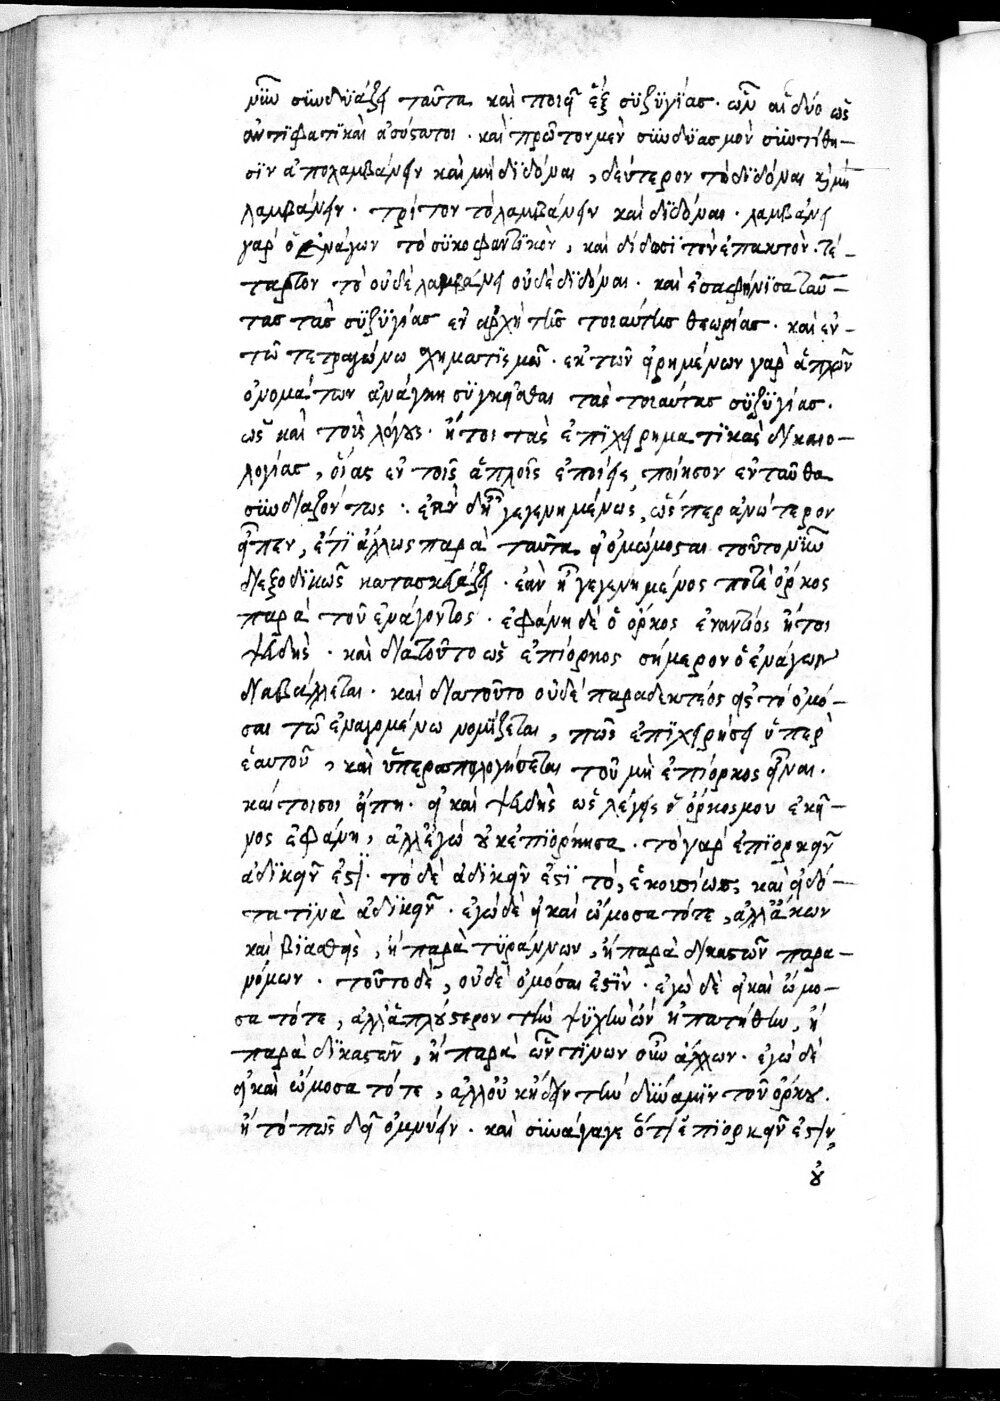 μϊῶν συνδυάζει ταῦτα καὶ ποιεῖ ἓξ συζυγίας· ὧν αἱ δύο ὡς
ἀντιφατικαὶ ἀσύστατοι· καὶ πρῶτον μὲν συνδυασμὸν συντίθη-
σιν ἀπολαμβάνειν καὶ μὴ διδόναι, δεύτερον τὸ διδόναι καὶ μὴ
λαμβάνειν· τρίτον τὸ λαμβάνειν καὶ διδόναι· λαμβάνει
γὰρ ὁ ἐνάγων τὸ συκοφαντικὸν, καὶ δίδωσι τὸν ἐπακτόν· τέ-
ταρτον τὸ οὐδὲ λαμβάνει οὐδὲ διδόναι· καὶ ἐσαφήνισα ταύ-
τας τὰς συζυγίας ἐν ἀρχῇ τῆς τοιαύτης θεωρίας· καὶ ἐν
τῷ τετραγώνῳ σχηματισμῷ· ἐκ τῶν εἰρημένων γὰρ ἁπλῶν
ὀνομάτων ἀνάγκη συγκεῖσθαι τὰς τοιαύτας συζυγίας·
ὡς καὶ τοὺς λόγους· ἤτοι τὰς ἐπιχειρηματικὰς δικαιο-
λογίας, οἵας ἐν τοῖς ἁπλοῖς ἐποίεις, ποίησον ἐνταῦθα
συνδιαζόντως· ἐὰν δὲ ᾖ γεγενημένως, ὥσπερ ἀνώτερον
εἶπεν, ἔτι ἄλλως παρὰ ταῦτα εἰ ὀμώμοσται τοῦτο
διεξοδικῶς κατασκευάζει· ἐὰν ᾖ γεγενημένος ποτὲ ὅρκος
παρὰ τοῦ ἐνάγοντος· ἐφάνη δὲ ὁ ὅρκος ἐναντίος ἤτοι
ψευδὴς· καὶ διὰ τοῦτο ὡς ἐπίορκος σήμερον ὁ ἐνάγων
διαβάλλεται· καὶ διὰ τοῦτο οὐδὲ παραδεκτέος εἰς τὸ ὀμό-
σαι τῷ ἐναγομένῳ νομίζεται, πῶς ἐπιχειρήσει ὑπὲρ
ἑαυτοῦ, καὶ ὑπεραπολογήσεται τοῦ μὴ ἐπίορκος εἶναι·
καί τοι σοι εἴπῃ· εἰ καὶ ψευδὴς ὡς λέγεις ὁ ὅρκος μου ἐκεῖ-
νος ἐφάνη, ἀλλ' ἐγὼ οὐκ ἐπιόρκησα· τὸ γὰρ ἐπιορκεῖν
ἀδικεῖν ἐστι· τὸ δὲ ἀδικεῖν ἐστὶ τὸ, ἑκουσίως, καὶ εἰδό-
τα τινὰ ἀδικεῖν· ἐγὼ δὲ εἰ καὶ ὤμοσα τότε, ἀλλ' ἄκων
καὶ βιασθεὶς, ἢ παρὰ τυράννων, ἢ παρὰ δικαστῶν παρα-
νόμων· τοῦτο δὲ, οὐδὲ ὀμόσαι ἐστὶν· ἐγὼ δὲ εἰ καὶ ὤμο-
σα τότε, ἀλλ' ἁπλούστερον τὴν ψυχὴν ὢν ἠπατήθην, ἢ
παρὰ δικαστῶν, ἢ παρὰ ὧν τινων οὖν ἄλλων· ἐγὼ δὲ
εἰ καὶ ὤμοσα τότε, ἀλλ' οὐκ ᾔδειν τὴν δύναμιν τοῦ ὅρκου.
ἢ τὸ πῶς δεῖ ὀμνύειν· καὶ συνάγαγε ὅτι ἐπιορκεῖν ἐστιν
οὐ